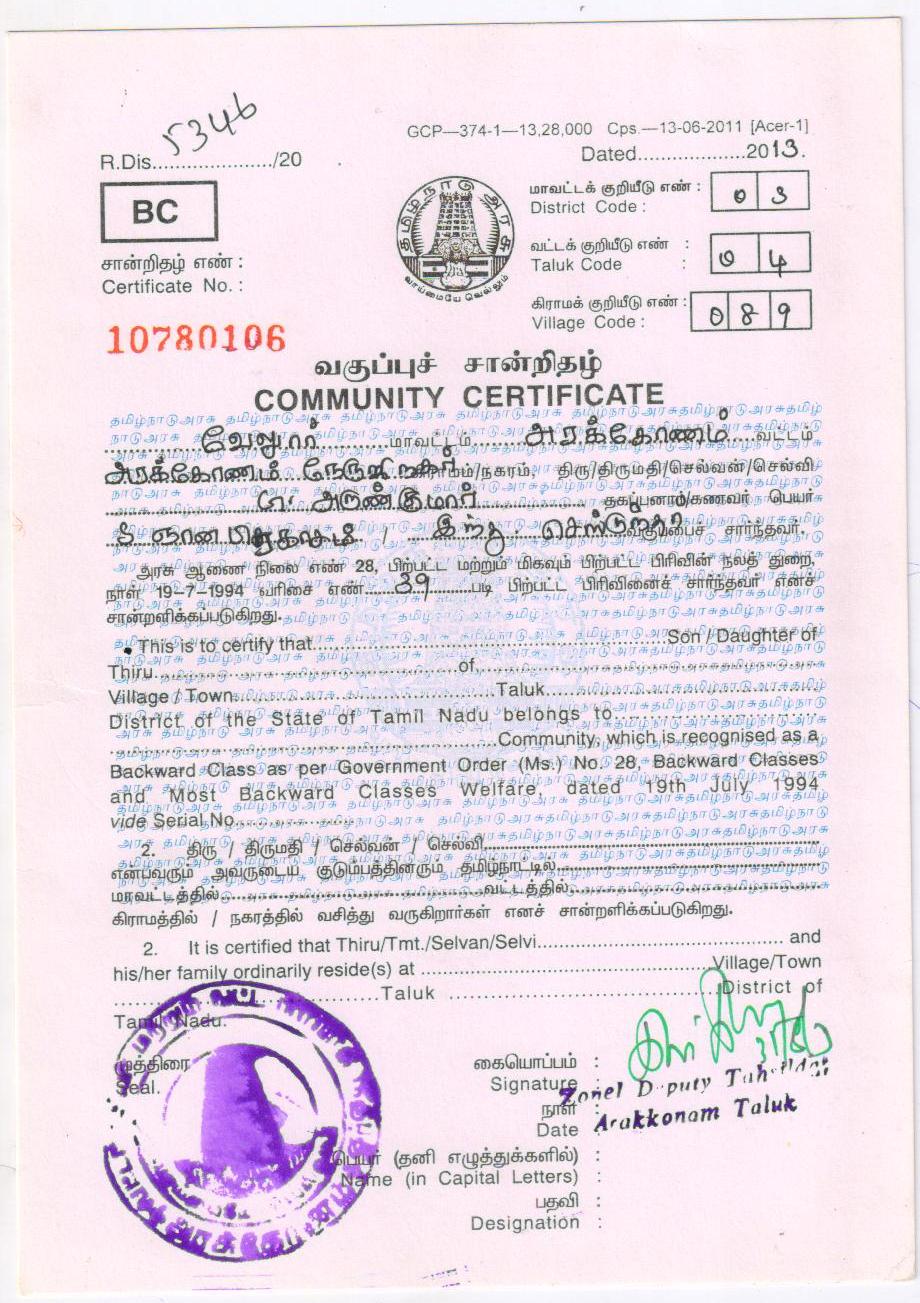 5346
GCP—374-1—13,28,000 Cps.—13-06-2011 [Acer-1]
R.Dis..................../20 .
Dated..................2013.
BC
தமிழ்நாடு அரசு
வாய்மையே வெல்லும்
மாவட்டக் குறியீடு எண் : 0 3
District Code :
வட்டக் குறியீடு எண் : 0 4
Taluk Code :
கிராமக் குறியீடு எண் : 0 8 9
Village Code :
சான்றிதழ் எண் :
Certificate No. :
10780106
வகுப்புச் சான்றிதழ்
COMMUNITY CERTIFICATE
வேலூர் மாவட்டம் அரக்கோணம் வட்டம்
அரக்கோணம் நேருஜி நகர் கிராமம்/நகரம், திரு/திருமதி/செல்வன்/செல்வி
அருண்குமார் தகப்பனார்/கணவர் பெயர்
ஞானபிரகாசம் / இந்து வகுப்பைச் சார்ந்தவர்.
அரசு ஆணை நிலை எண் 28, பிற்பட்ட மற்றும் மிகவும் பிற்பட்ட பிரிவின் நலத் துறை,
நாள் 19-7-1994 வரிசை எண் 39 படி பிற்பட்ட பிரிவினைச் சார்ந்தவர் எனச்
சான்றளிக்கப்படுகிறது.
This is to certify that..............................Son / Daughter of
Thiru..............................of..............................
Village / Town..............................Taluk..............................
District of the State of Tamil Nadu belongs to..............................
..............................Community, which is recognised as a
Backward Class as per Government Order (Ms.) No. 28, Backward Classes
and Most Backward Classes Welfare, dated 19th July 1994
vide Serial No....................
2. திரு / திருமதி / செல்வன் / செல்வி..............................
என்பவரும் அவருடைய குடும்பத்தினரும் தமிழ்நாட்டில்..............................
மாவட்டத்தில்..............................வட்டத்தில்..............................
கிராமத்தில் / நகரத்தில் வசித்து வருகிறார்கள் எனச் சான்றளிக்கப்படுகிறது.
2. It is certified that Thiru/Tmt./Selvan/Selvi.............................. and
his/her family ordinarily reside(s) at ..............................Village/Town
..............................Taluk ..............................District of
Tamil Nadu.
முத்திரை
Seal.
கையொப்பம் :
Signature :
Zonel Deputy Tahsildar
நாள் :
Date :
Arakkonam Taluk
பெயர் (தனி எழுத்துக்களில்) :
Name (in Capital Letters) :
பதவி :
Designation :